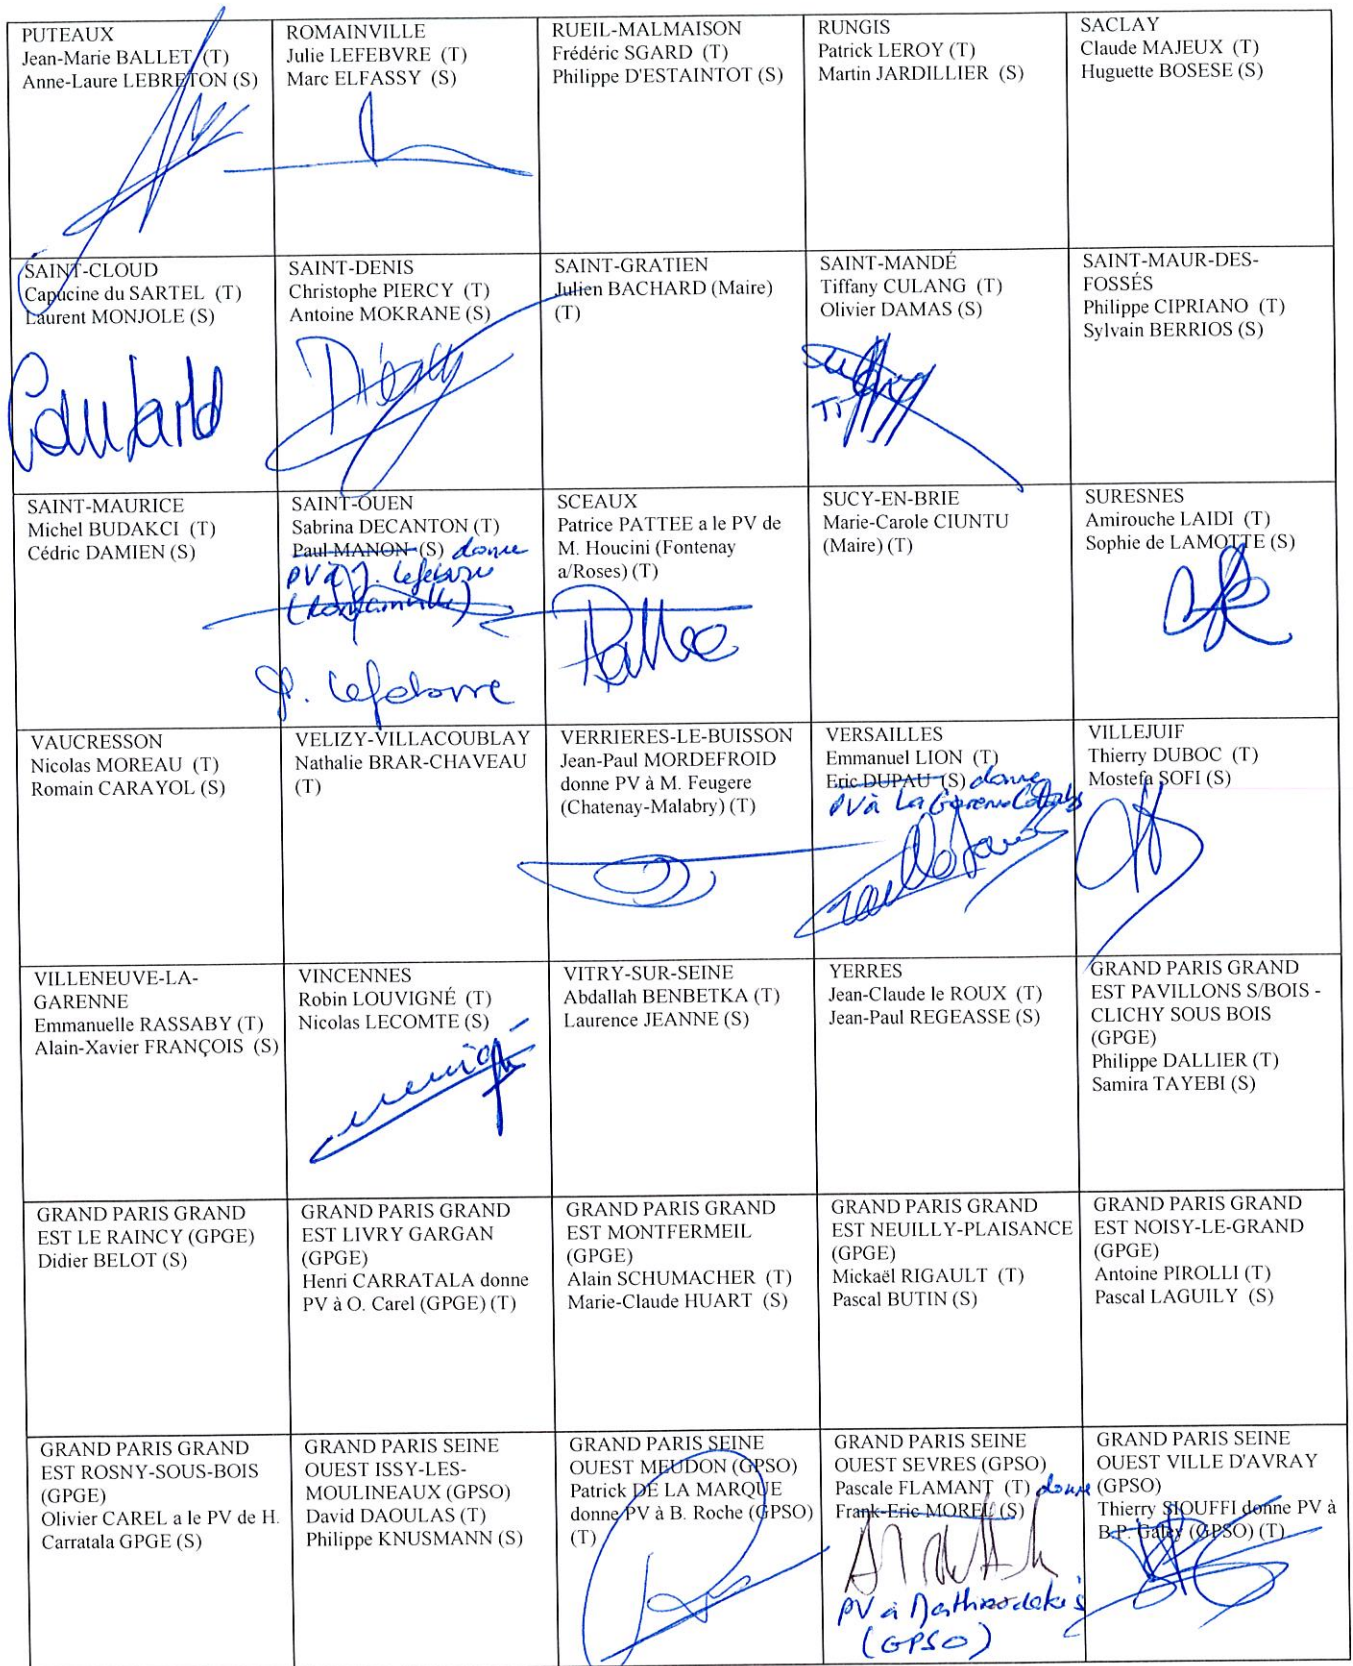 PUTEAUX
Jean-Marie BALLET (T)
Anne-Laure LEBRETON (S)
ROMAINVILLE
Julie LEFEBVRE (T)
Marc ELFASSY (S)
RUEIL-MALMAISON
Frédéric SGARD (T)
Philippe D'ESTAINTOT (S)
RUNGIS
Patrick LEROY (T)
Martin JARDILLIER (S)
SACLAY
Claude MAJEUX (T)
Huguette BOSESE (S)
SAINT-CLOUD
Capucine du SARTEL (T)
Laurent MONJOLE (S)
SAINT-DENIS
Christophe PIERCY (T)
Antoine MOKRANE (S)
SAINT-GRATIEN
Julien BACHARD (Maire)
(T)
SAINT-MANDÉ
Tiffany CULANG (T)
Olivier DAMAS (S)
SAINT-MAUR-DES-
FOSSÉS
Philippe CIPRIANO (T)
Sylvain BERRIOS (S)
SAINT-MAURICE
Michel BUDAKCI (T)
Cédric DAMIEN (S)
SAINT-OUEN
Sabrina DECANTON (T)
Paul MANON (S) donne
PV à J. Lefebvre
(Romainville)
J. Lefebvre
SCEAUX
Patrice PATTEE a le PV de
M. Houcini (Fontenay
a/Roses) (T)
Pattee
SUCY-EN-BRIE
Marie-Carole CIUNTU
(Maire) (T)
SURESNES
Amirouche LAIDI (T)
Sophie de LAMOTTE (S)
VAUCRESSON
Nicolas MOREAU (T)
Romain CARAYOL (S)
VELIZY-VILLACOUBLAY
Nathalie BRAR-CHAVEAU
(T)
VERRIERES-LE-BUISSON
Jean-Paul MORDEFROID
donne PV à M. Feugere
(Chatenay-Malabry) (T)
VERSAILLES
Emmanuel LION (T)
Eric DUPAU (S) donne
PV à La Garenne Colombes
VILLEJUIF
Thierry DUBOC (T)
Mostefa SOFI (S)
VILLENEUVE-LA-
GARENNE
Emmanuelle RASSABY (T)
Alain-Xavier FRANÇOIS (S)
VINCENNES
Robin LOUVIGNÉ (T)
Nicolas LECOMTE (S)
VITRY-SUR-SEINE
Abdallah BENBETKA (T)
Laurence JEANNE (S)
YERRES
Jean-Claude le ROUX (T)
Jean-Paul REGEASSE (S)
GRAND PARIS GRAND
EST PAVILLONS S/BOIS -
CLICHY SOUS BOIS
(GPGE)
Philippe DALLIER (T)
Samira TAYEBI (S)
GRAND PARIS GRAND
EST LE RAINCY (GPGE)
Didier BELOT (S)
GRAND PARIS GRAND
EST LIVRY GARGAN
(GPGE)
Henri CARRATALA donne
PV à O. Carel (GPGE) (T)
GRAND PARIS GRAND
EST MONTFERMEIL
(GPGE)
Alain SCHUMACHER (T)
Marie-Claude HUART (S)
GRAND PARIS GRAND
EST NEUILLY-PLAISANCE
(GPGE)
Mickaël RIGAULT (T)
Pascal BUTIN (S)
GRAND PARIS GRAND
EST NOISY-LE-GRAND
(GPGE)
Antoine PIROLLI (T)
Pascal LAGUILY (S)
GRAND PARIS GRAND
EST ROSNY-SOUS-BOIS
(GPGE)
Olivier CAREL a le PV de H.
Carratala GPGE (S)
GRAND PARIS SEINE
OUEST ISSY-LES-
MOULINEAUX (GPSO)
David DAOULAS (T)
Philippe KNUSMANN (S)
GRAND PARIS SEINE
OUEST MEUDON (GPSO)
Patrick DE LA MARQUE
donne PV à B. Roche (GPSO)
(T)
GRAND PARIS SEINE
OUEST SEVRES (GPSO)
Pascale FLAMANT (T) donne
Frank-Eric MOREL (S)
PV à
(GPSO)
GRAND PARIS SEINE
OUEST VILLE D'AVRAY
(GPSO)
Thierry SIOUFFI donne PV à
B.P. Galey (GPSO) (T)